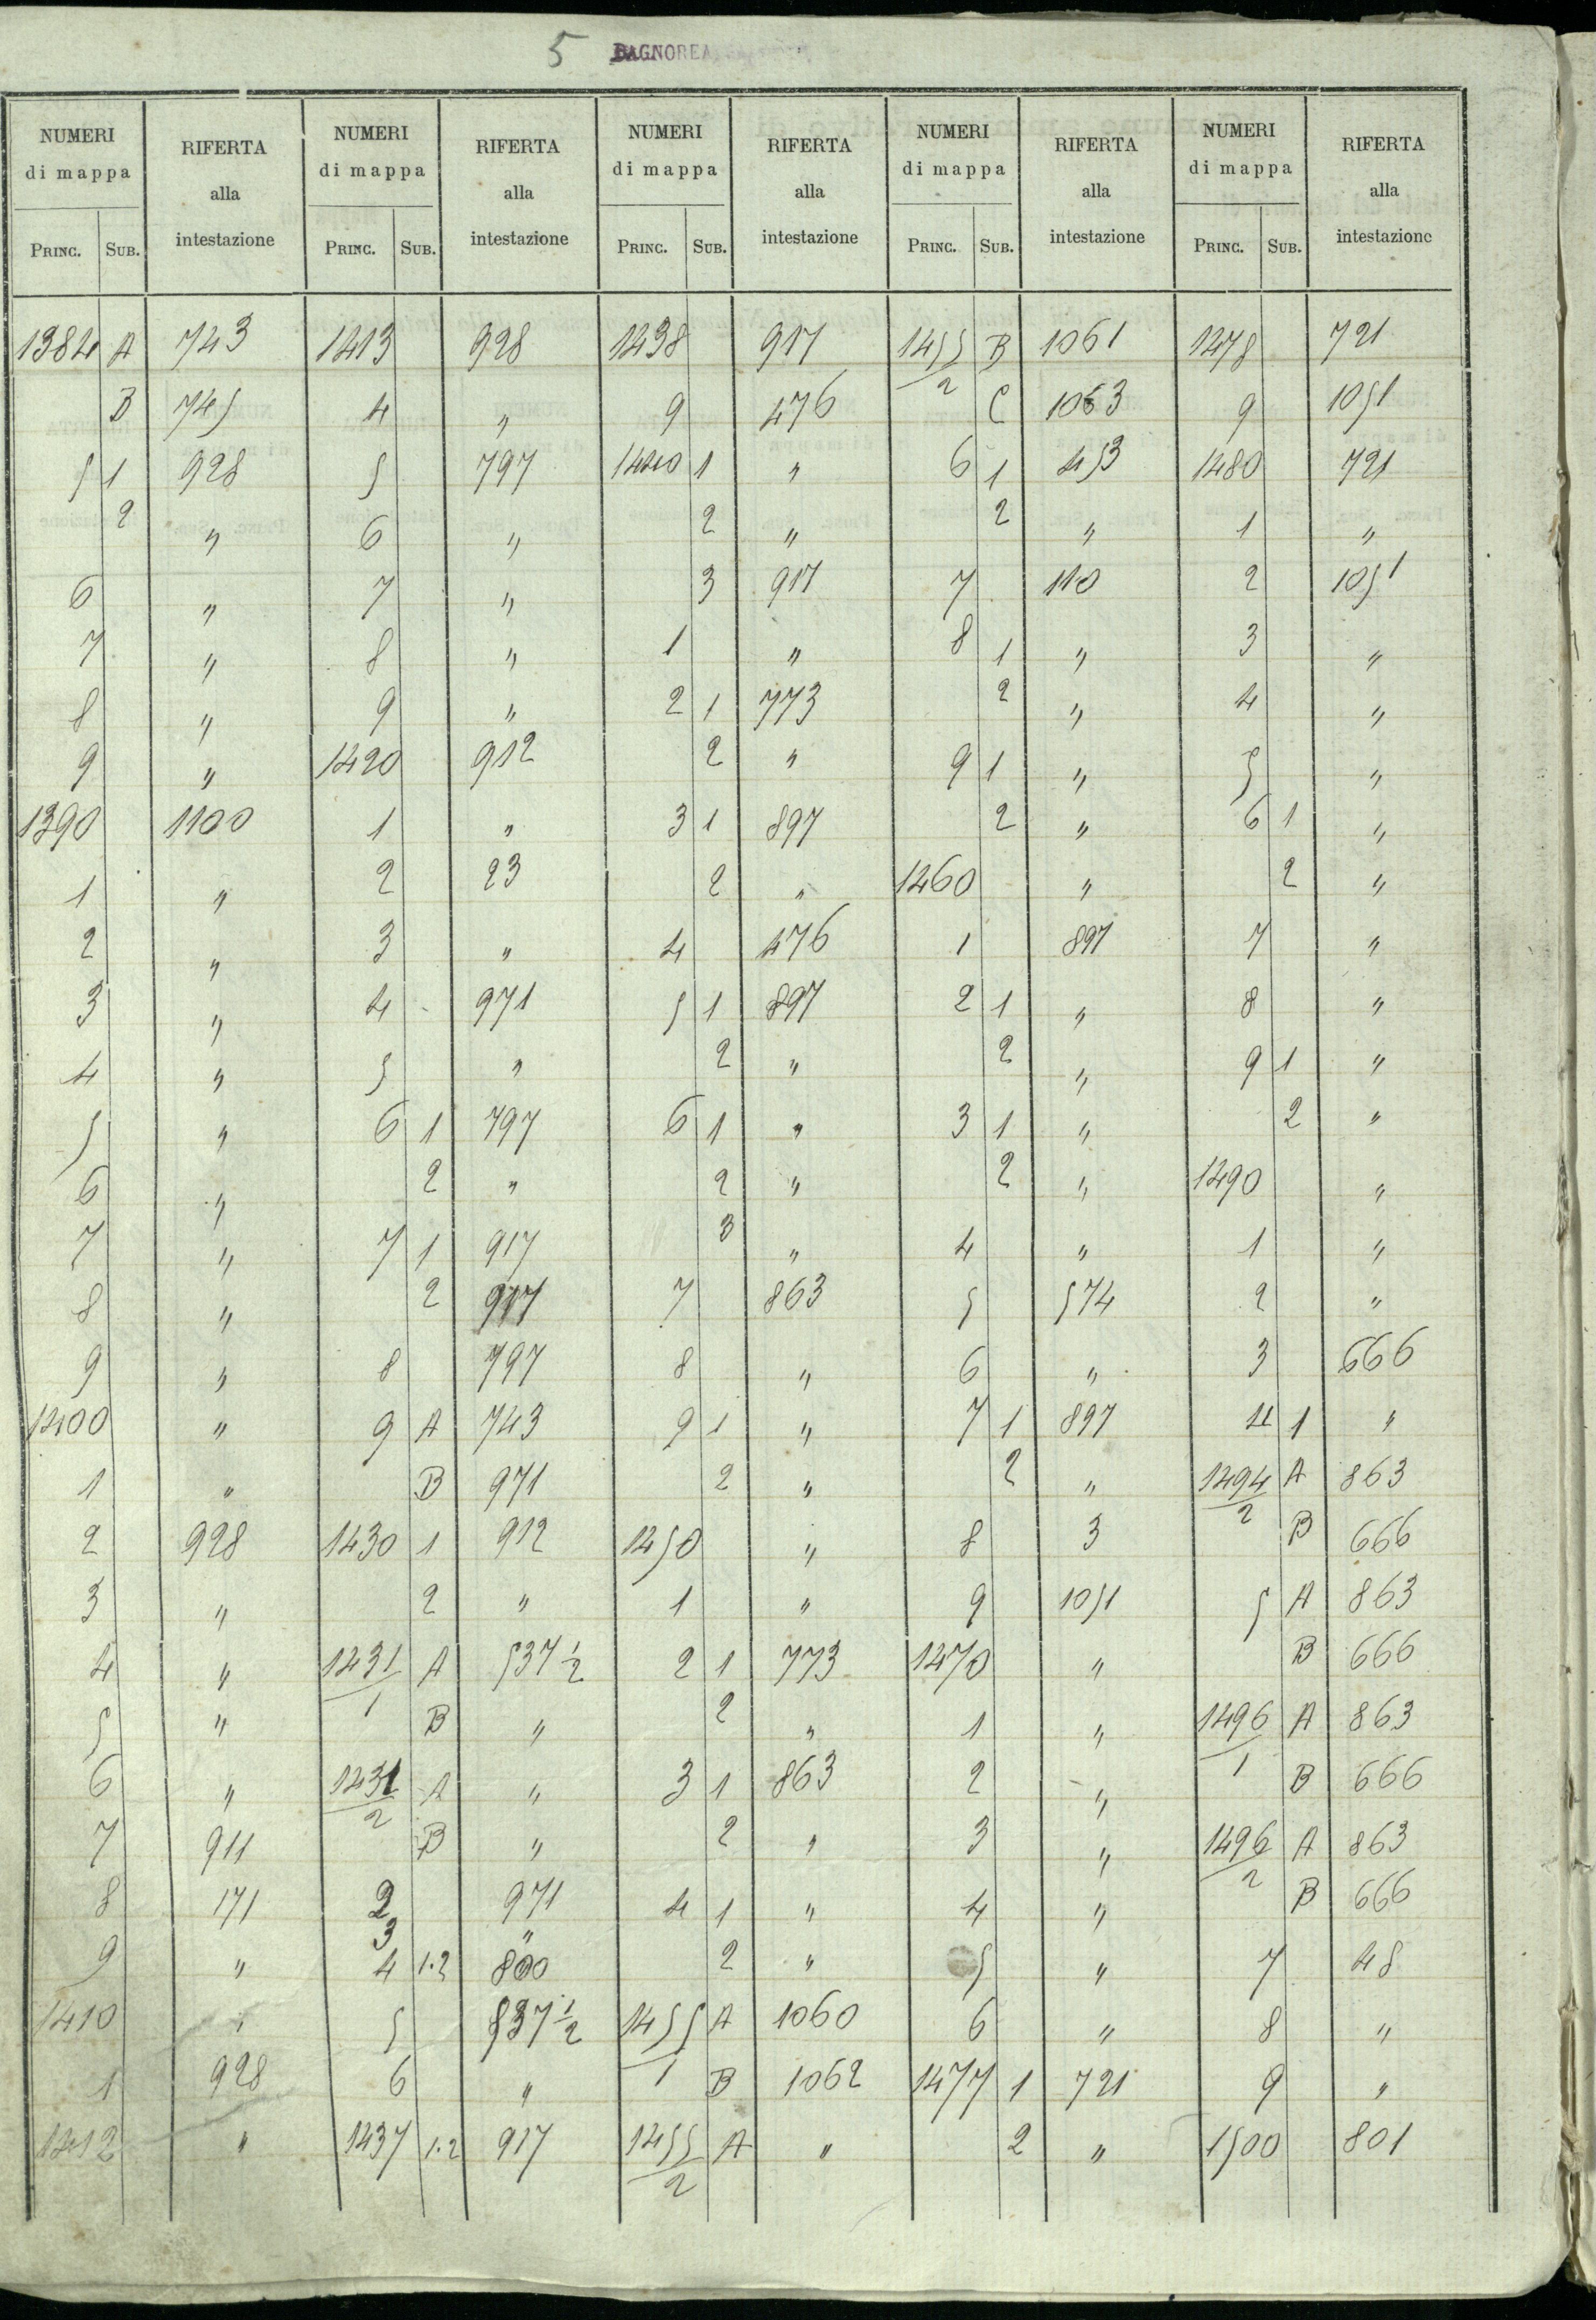 5 BAGNOREA
NUMERI di mappa RIFERTA alla intestazione NUMERI di mappa RIFERTA alla intestazione NUMERI di mappa RIFERTA alla intestazione NUMERI di mappa RIFERTA alla intestazione NUMERI di mappa RIFERTA alla intestazione
PRINC. SUB. PRINC. SUB. PRINC. SUB. PRINC. SUB. PRINC. SUB.
1384 A 743 1413 928 1438 917 1455/2 B 1061 1478 721
B 745 4 " 9 476 C 1063 9 1051
5 1 928 5 797 1440 1 " 6 1 453 1480 721
2 " 6 " 2 " 2 " 1 "
6 " 7 " 3 917 7 110 2 1051
7 " 8 " 1 " 8 1 " 3 "
8 " 9 " 2 1 773 2 " 4 "
9 " 1420 912 2 " 9 1 " 5 "
1390 1100 1 " 3 1 897 2 " 6 1 "
1 " 2 23 2 " 1460 " 2 "
2 " 3 " 4 476 1 897 7 "
3 " 4 971 5 1 897 2 1 " 8 "
4 " 5 " 2 " 2 " 9 1 "
5 " 6 1 797 6 1 " 3 1 " 2 "
6 " 2 " 2 " 2 " 1490 "
7 " 7 1 917 3 " 4 " 1 "
8 " 2 917 7 863 5 574 2 "
9 " 8 797 8 " 6 " 3 666
1400 " 9 A 743 9 1 " 7 1 897 4 1 "
1 " B 971 2 " 2 " 1494/2 A 863
2 928 1430 1 912 1450 " 8 3 B 666
3 " 2 " 1 " 9 1051 5 A 863
4 " 1431/1 A 537 1/2 2 1 773 1470 " B 666
5 " B " 2 " 1 " 1496/1 A 863
6 " 1431/2 A " 3 1 863 2 " B 666
7 911 B " 2 " 3 " 1496/2 A 863
8 171 2 971 4 1 " 4 " B 666
3 "
9 " 4 1.2 800 2 " 5 " 7 48
1410 " 5 537 1/2 1455/1 A 1060 6 " 8 "
1 928 6 " B 1062 1477 1 721 9 "
1412 " 1437 1.2 917 1455/2 A " 2 " 1500 801